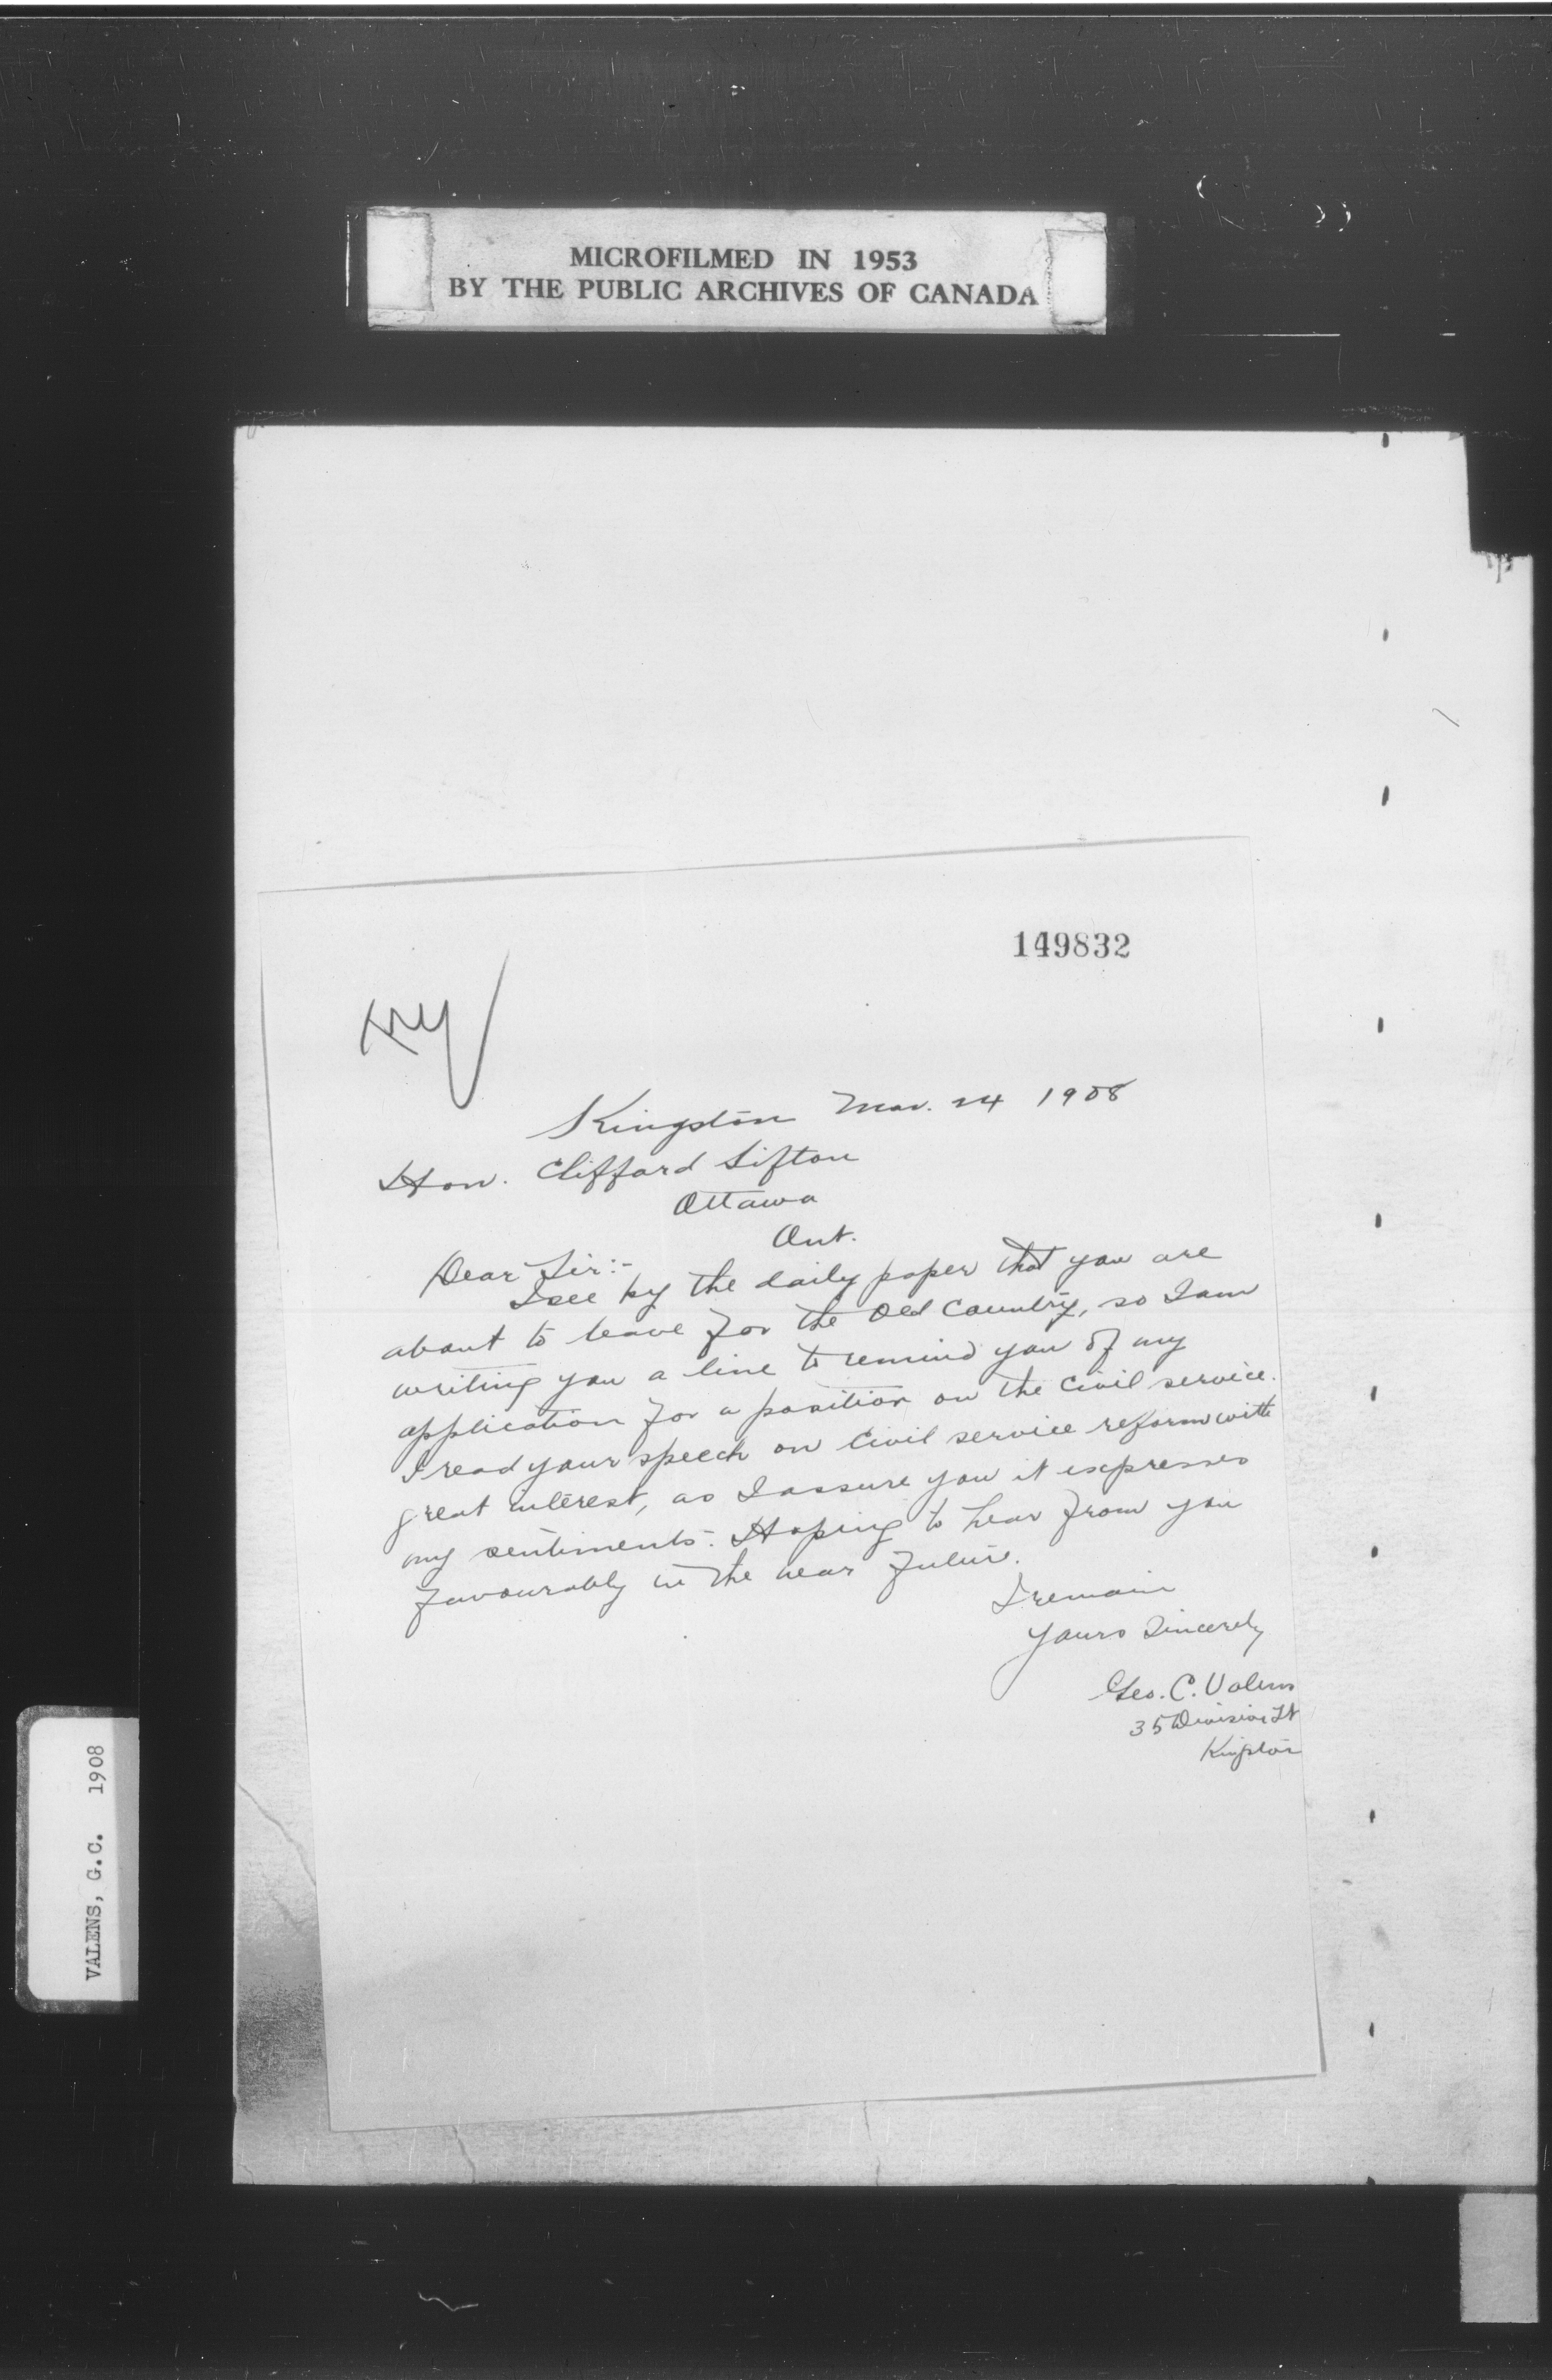 MICROFILMED IN 1953
BY THE PUBLIC ARCHIVES OF CANADA
149832
Kingston Mar. 24 1908
Hon. Clifford Sifton
Ottawa
Ont.
Dear Sir:-
I see by the daily paper that you are
about to leave for the Old Country, so I am
writing you a line to remind you of my
application for a position on the Civil service.
I read your speech on Civil service reform with
great interest, as I assure you it expresses
my sentiments. Hoping to hear from you
favourably in the near future.
I remain
Yours Sincerely
Geo. C. Valens
35 Division St
Kingston
VALENS, G.C. 1908